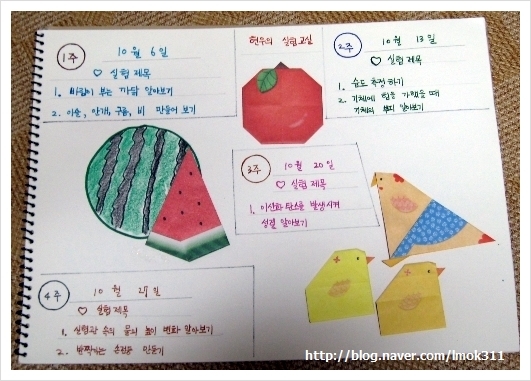 현우의 실험교실
1주
10월 6일
♡ 실험 제목
1. 바람이 부는 까닭 알아보기
2. 이슬, 안개, 구름, 비 만들어 보기
2주
10월 13일
♡ 실험 제목
1. 습도 측정하기
2. 기체에 힘을 가했을 때
기체의 부피 알아보기
3주
10월 20일
♡ 실험 제목
1. 이산화 탄소를 발생시켜
성질 알아보기
4주
10월 27일
♡ 실험 제목
1. 실험관 속의 물의 높이 변화 알아보기
2. 반짝가는 손전등 만들기
http://blog.naver.com/lmok311